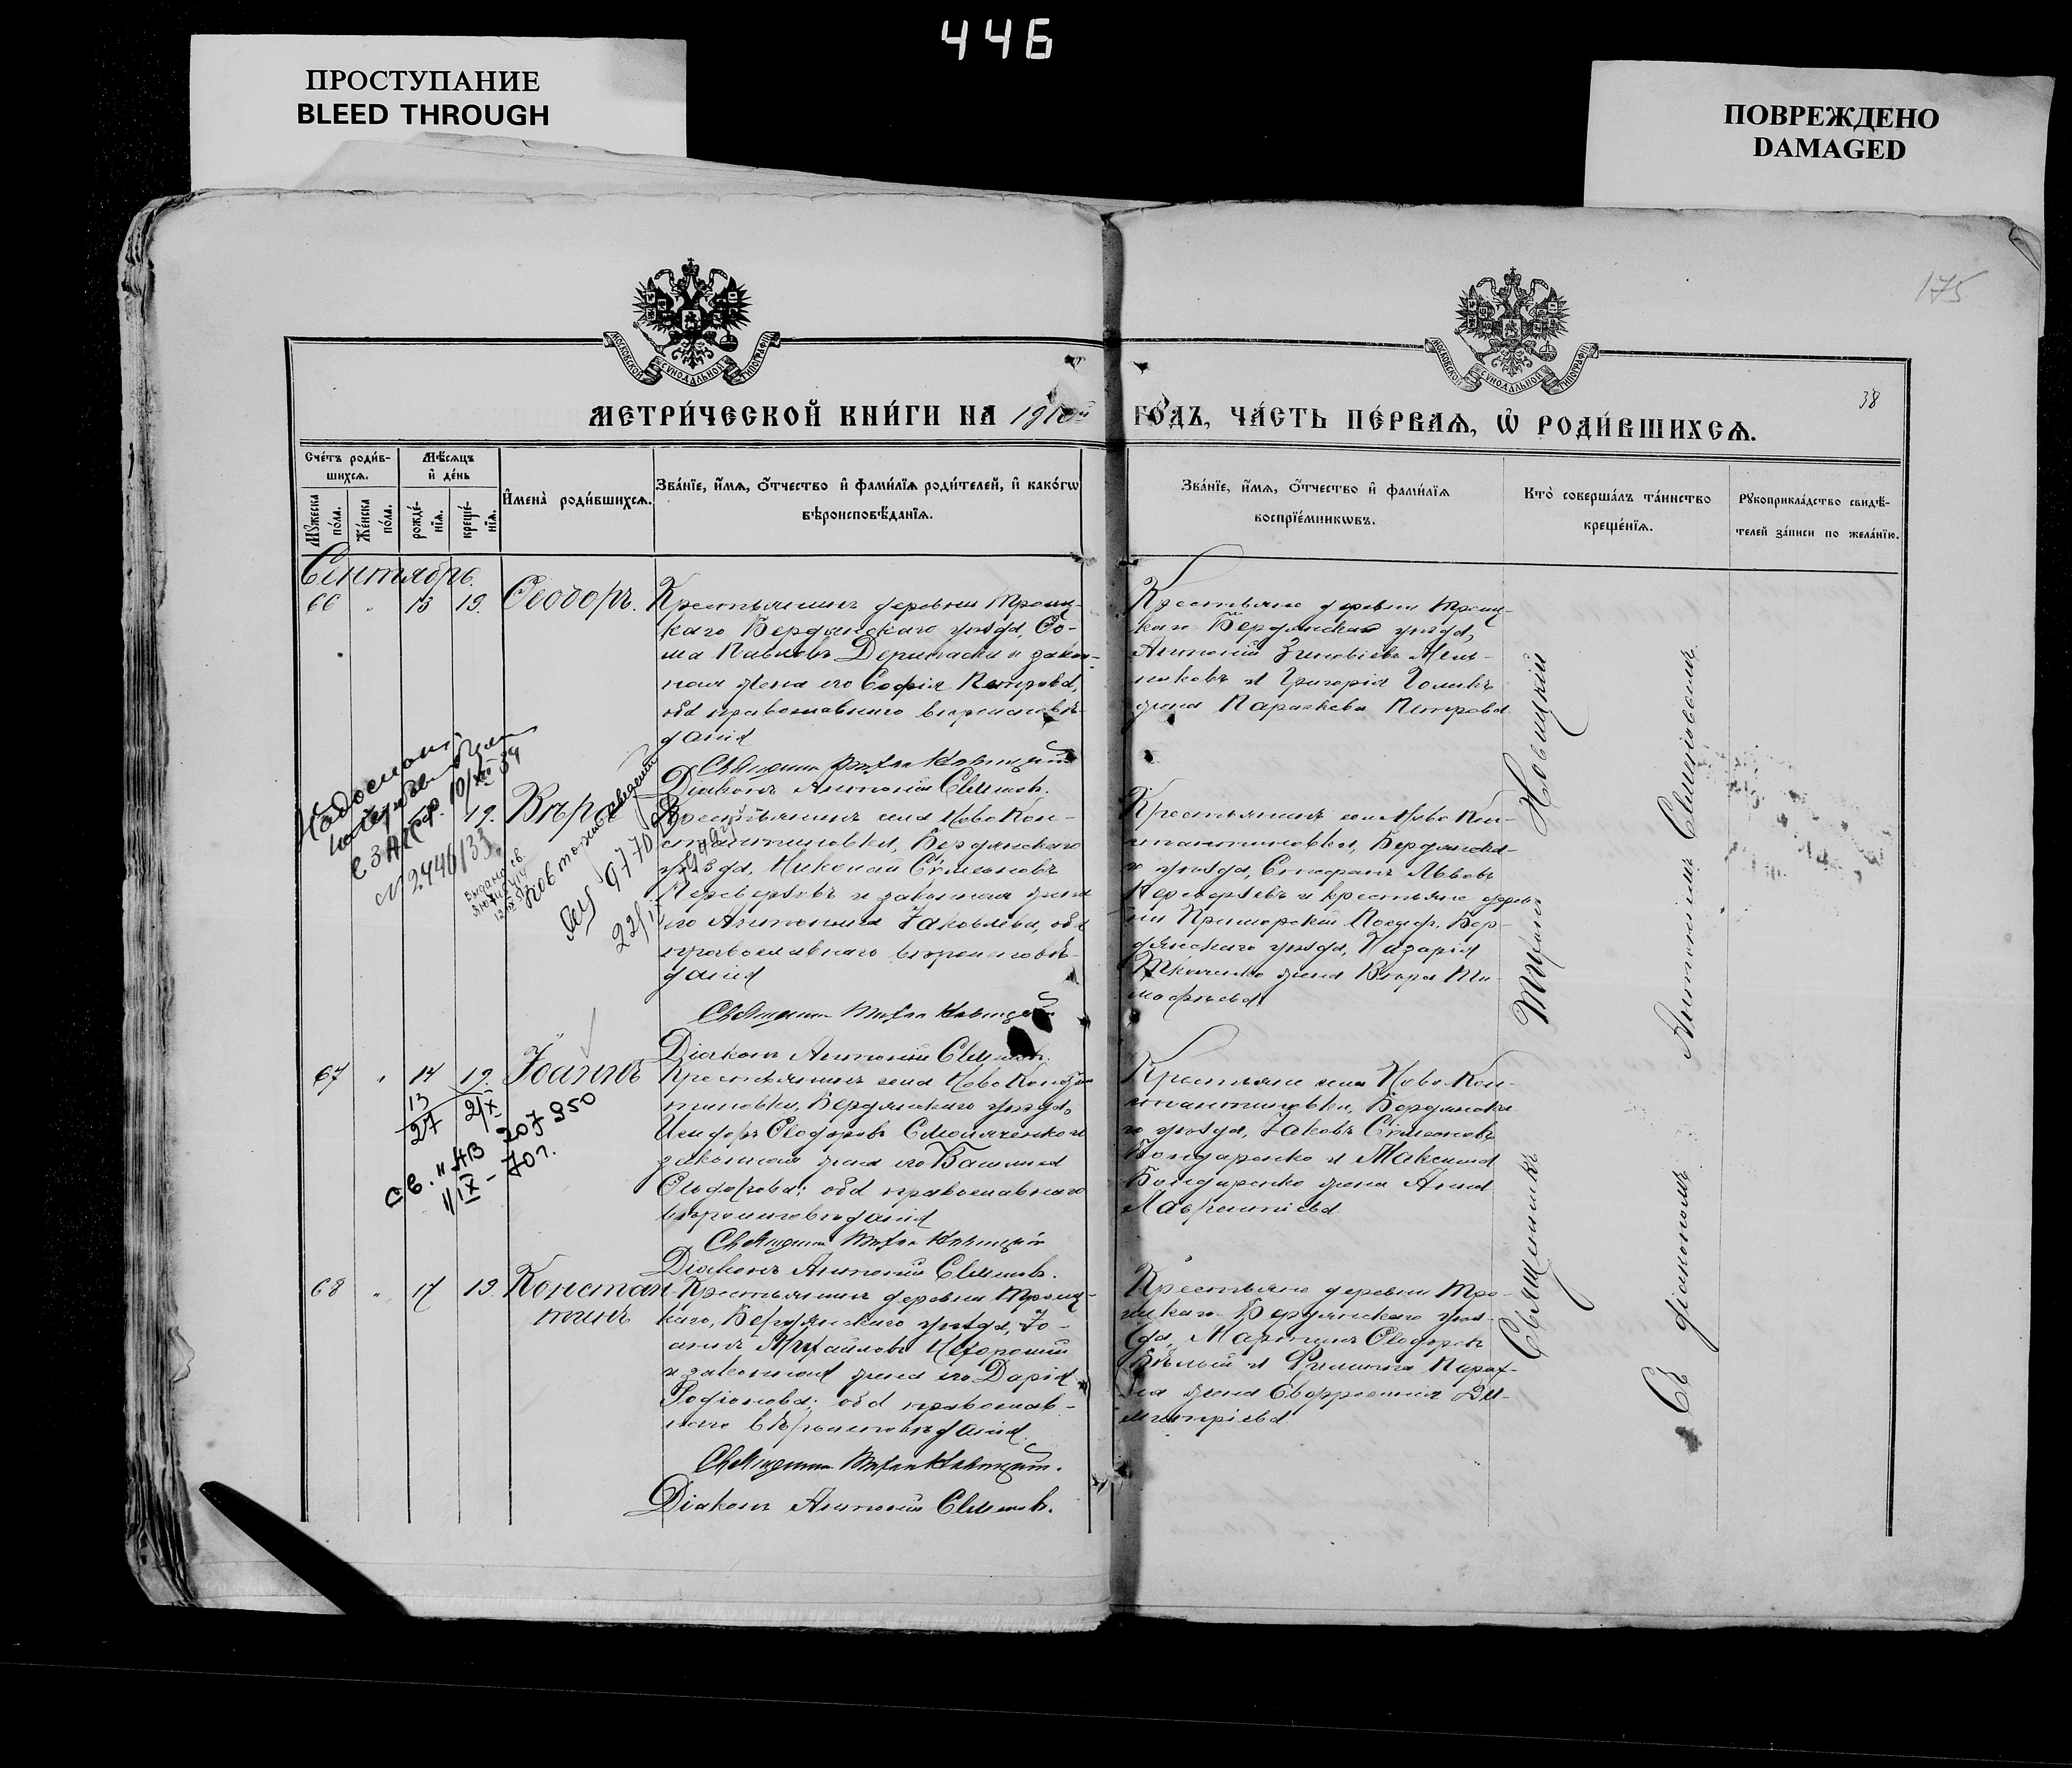 446
ПРОСТУПАНИЕ
BLEED THROUGH
ПОВРЕЖДЕНО
DAMAGED
175
38
МОСКОВСКОЙ СѴНОДАЛЬНОЙ ТИПОГРАФІИ
МОСКОВСКОЙ СѴНОДАЛЬНОЙ ТИПОГРАФІИ
МЕТРИ́ЧЕСКОЙ КНИ́ГИ НА 1910й ГО́ДЪ, ЧА́СТЬ ПЕ́РВАѦ, Ѡ҆ РОДИ́ВШИХСѦ.
Сче́тъ роди́в-
шихсѧ.
Мѣ́сѧцъ
и҆ де́нь
Мꙋжеска
по́ла.
Же́нска
по́ла.
рожде́-
нїѧ.
креще́-
нїѧ.
И҆мена̀ роди́вшихсѧ.
Зва́нїе, и҆́мѧ, ѻ҆́тчество и҆ фами́лїѧ роди́телей, и҆ како́гѡ
вѣроисповѣ́данїѧ.
Зва́нїе, и҆́мѧ, ѻ҆́тчество и҆ фами́лїѧ
воспрїе́мникѡвъ.
Кто̀ соверша́лъ та́инство
креще́нїѧ.
Рꙋкоприкла́дство свидѣ́-
телей за́писи по жела́нїю.
Сентябрь.
66 " 13 19. Ѳеодоръ.
Крестьянинъ деревни Троиц-
каго Бердянскаго уѣзда, Ѳо-
ма Павловъ Дерипаска и закон-
ная жена его Софія Петрова,
оба православнаго вѣроисповѣ-
данія
Священникъ Тихонъ Новицкій
Діаконъ Антоній Симоновъ.
Крестьяне деревни Троиц-
каго Бердянскаго уѣзда,
Антоній Зиновіевъ Мель-
никовъ и Григорія Голикъ
жена Параскева Петрова
19. Вѣра
Крестьянинъ села Ново Кон-
стантиновки, Бердянскаго
уѣзда, Николай Сѵмеоновъ
Переверзевъ и законная жена
его Антонина Іаковлева, оба
православнаго вѣроисповѣ-
данія
Священникъ Тихонъ Новицкій
Діаконъ Антоній Симоновъ.
Крестьянинъ села Ново Кон-
стантиновки, Бердянска-
го уѣзда, Стефанъ Львовъ
Переверзевъ и крестьяне дерев-
ни Приморскій Посадъ, Бер-
дянскаго уѣзда, Назарія
Ткаченко жена Вѣра Ти-
моѳеева
№ 2446133
Повторное
9770
67 " 14 19. Іоаннъ
Крестьянинъ села Ново Констан
тиновки, Бердянскаго уѣзда,
Исидоръ Ѳеодоровъ Симонченко и
законная жена его Васлиса
Ѳеодорова; оба православнаго
вѣроисповѣданія
Священникъ Тихонъ Новицкій
Діаконъ Антоній Симоновъ.
Крестьяне села Ново Кон-
стантиновки, Бердянска-
го уѣзда, Іаковъ Сѵмеоновъ
Бондаренко и Максима
Бондаренко жена Анна
Лаврентіева
13
27 21X
св. II АВ 207350
11 IX - 70г.
68 " 17 19. Констан
тинъ
Крестьянинъ деревни Троиц-
каго, Бердянскаго уѣзда, Іо-
аннъ Михайловъ Нехорошій
и законная жена его Дарія
Родіонова; оба православ-
наго вѣроисповѣданія.
Священникъ Тихонъ Новицкій.
Діаконъ Антоній Симоновъ.
Крестьяне деревни Тро-
ицкаго Бердянскаго уѣз-
да, Мартинъ Ѳеодоровъ
Бѣлый и Филиппа
жена Евфросинія Ди-
митріева
Священникъ Тихонъ Новицкій
Съ діакономъ Антоніемъ Симоновымъ